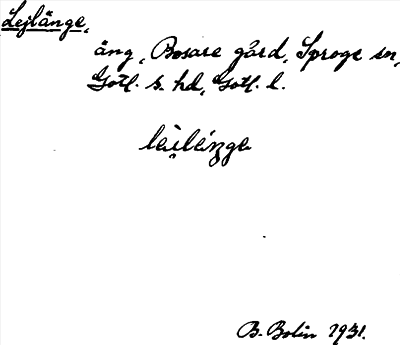 Lejlänge,
äng, Bosare gård, Sproge sn,
Gotl. s. hd, Gotl. l.
lèi̯lénge
B. Bolin 1931.